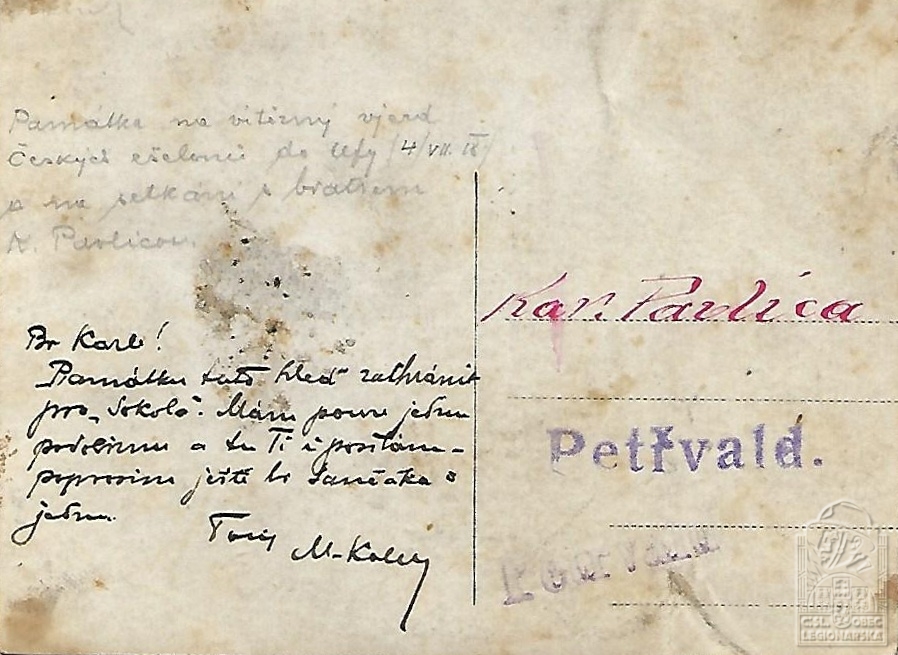 Památka na vítězný vjezd
Českých ešelonů do Ufy (4/VII. 18)
a na setkání s bratrem
K. Pavlicou.
Br Karle!
Památku tuto hleď zachránit
pro „Sokola“. Mám pouze jednu
podobiznu a tu Ti i posílám –
poprosím ještě br Jančáka o
jednu.
Tvůj
Kar. Pavlica
Petřvald.
ČSL. OBEC
LEGIONÁŘSKÁ